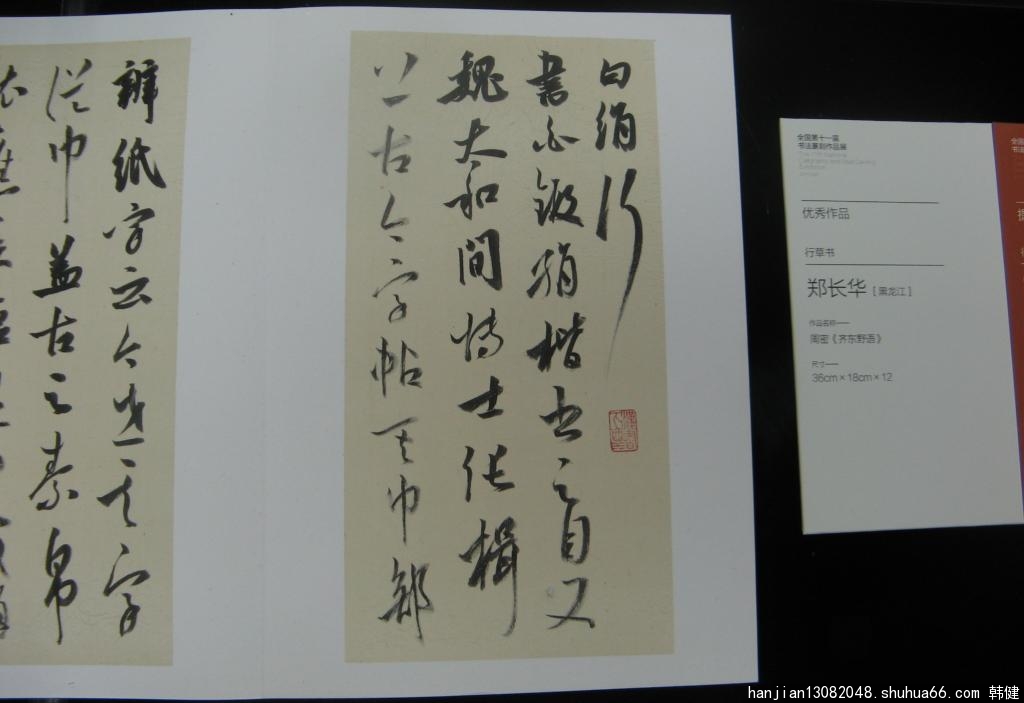 白絹行
書亦緞絹楷書之目又
魏太和間博士張揖
上古今字帖其巾部
辨紙字云今世其字
從巾蓋古之素帛
全国第十一届
书法篆刻作品展
优秀作品
行草书
郑长华 [黑龙江]
作品名称——
周密《齐东野语》
尺寸——
36cm×18cm×12
hanjian13082048.shuhua66.com 韩健